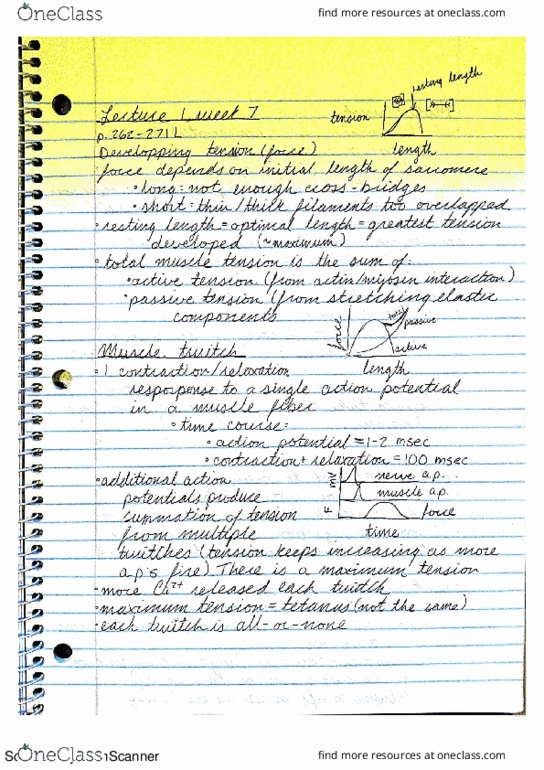 OneClass find more resources at oneclass.com
resting length
Lecture 1, week 7
tension
p. 262-271 L
length
Developping tension (force)
force depends on initial length of sarcomere
• long: not enough cross-bridges
• short: thin/thick filaments too overlapped
• resting length = optimal length = greatest tension
developed (~maximum)
• total muscle tension is the sum of:
• active tension (from actin/myosin interaction)
• passive tension (from stretching elastic
components
total
passive
force
active
length
Muscle twitch
• 1 contraction/relaxation
response to a single action potential
in a muscle fiber
• time course:
• action potential = 1-2 msec
• contraction + relaxation = 100 msec
• additional action
mV
nerve a.p.
potentials produce
muscle a.p.
summation of tension
F
force
from multiple
time
twitches (tension keeps increasing as more
a.p.s fire) There is a maximum tension
• more Ca2+ released each twitch
• maximum tension = tetanus (not the same)
• each twitch is all-or-none
OneClass Scanner find more resources at oneclass.com